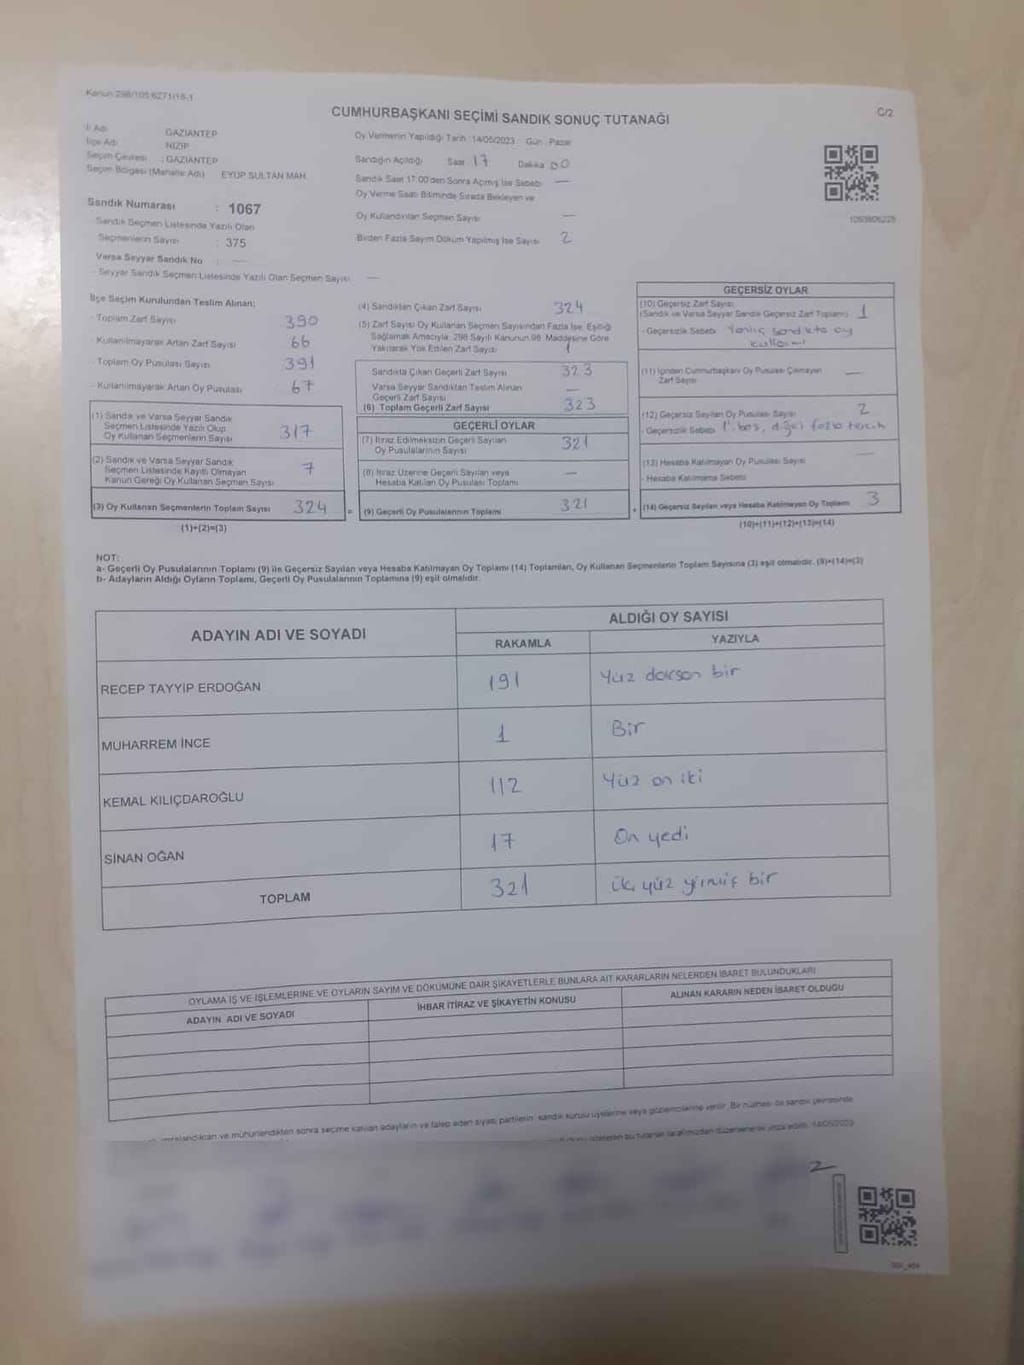 Kanun 298/105 6271/18-1
CUMHURBAŞKANI SEÇİMİ SANDIK SONUÇ TUTANAĞI
C/2
İl Adı GAZIANTEP
İlçe Adı NIZIP
Seçim Çevresi : GAZIANTEP
Seçim Bölgesi (Mahalle Adı) EYUP SULTAN MAH.
Sandık Numarası : 1067
Sandık Seçmen Listesinde Yazılı Olan
Seçmenlerin Sayısı : 375
Varsa Seyyar Sandık No : —
- Seyyar Sandık Seçmen Listesinde Yazılı Olan Seçmen Sayısı : —
Oy Vermenin Yapıldığı Tarih : 14/05/2023 Gün : Pazar
Sandığın Açıldığı Saat 17 Dakika 00
Sandık Saat 17:00'den Sonra Açılmış İse Sebebi —
Oy Verme Saati Bitiminde Sırada Bekleyen ve
Oy Kullandırılan Seçmen Sayısı —
Birden Fazla Sayım Döküm Yapılmış İse Sayısı 2
1093806228
İlçe Seçim Kurulundan Teslim Alınan;
- Toplam Zarf Sayısı 390
- Kullanılmayarak Artan Zarf Sayısı 66
- Toplam Oy Pusulası Sayısı 391
- Kullanılmayarak Artan Oy Pusulası 67
(1) Sandık ve Varsa Seyyar Sandık
Seçmen Listesinde Yazılı Olup
Oy Kullanan Seçmenlerin Sayısı 317
(2) Sandık ve Varsa Seyyar Sandık
Seçmen Listesinde Kayıtlı Olmayan
Kanun Gereği Oy Kullanan Seçmen Sayısı 7
(3) Oy Kullanan Seçmenlerin Toplam Sayısı 324 =
(1)+(2)=(3)
(4) Sandıktan Çıkan Zarf Sayısı 324
(5) Zarf Sayısı Oy Kullanan Seçmen Sayısından Fazla İse, Eşitliği
Sağlamak Amacıyla; 298 Sayılı Kanunun 98. Maddesine Göre
Yakılarak Yok Edilen Zarf Sayısı 1
Sandıkta Çıkan Geçerli Zarf Sayısı 323
Varsa Seyyar Sandıktan Teslim Alınan
Geçerli Zarf Sayısı —
(6) Toplam Geçerli Zarf Sayısı 323
GEÇERLİ OYLAR
(7) İtiraz Edilmeksizin Geçerli Sayılan
Oy Pusulalarının Sayısı 321
(8) İtiraz Üzerine Geçerli Sayılan veya
Hesaba Katılan Oy Pusulası Toplamı —
(9) Geçerli Oy Pusulalarının Toplamı 321 +
GEÇERSİZ OYLAR
(10) Geçersiz Zarf Sayısı
(Sandık ve Varsa Seyyar Sandık Geçersiz Zarf Toplamı) 1
- Geçersizlik Sebebi Yanlış sandıkta oy
kullanımı
(11) İçinden Cumhurbaşkanı Oy Pusulası Çıkmayan
Zarf Sayısı —
(12) Geçersiz Sayılan Oy Pusulası Sayısı 2
- Geçersizlik Sebebi 1'i boş, diğeri fazla tercih
(13) Hesaba Katılmayan Oy Pusulası Sayısı —
- Hesaba Katılmama Sebebi
(14) Geçersiz Sayılan veya Hesaba Katılmayan Oy Toplamı 3
(10)+(11)+(12)+(13)=(14)
NOT:
a- Geçerli Oy Pusulalarının Toplamı (9) ile Geçersiz Sayılan veya Hesaba Katılmayan Oy Toplamı (14) Toplamları, Oy Kullanan Seçmenlerin Toplam Sayısına (3) eşit olmalıdır. (9)+(14)=(3)
b- Adayların Aldığı Oyların Toplamı, Geçerli Oy Pusulalarının Toplamına (9) eşit olmalıdır.
ADAYIN ADI VE SOYADI
ALDIĞI OY SAYISI
RAKAMLA YAZIYLA
RECEP TAYYİP ERDOĞAN 191 Yüz doksan bir
MUHARREM İNCE 1 Bir
KEMAL KILIÇDAROĞLU 112 Yüz on iki
SİNAN OĞAN 17 On yedi
TOPLAM 321 yüz bir
OYLAMA İŞ VE İŞLEMLERİNE VE OYLARIN SAYIM VE DÖKÜMÜNE DAİR ŞİKAYETLERLE BUNLARA AİT KARARLARIN NELERDEN İBARET BULUNDUKLARI
ADAYIN ADI VE SOYADI
İHBAR İTİRAZ VE ŞİKAYETİN KONUSU
ALINAN KARARIN NEDEN İBARET OLDUĞU
ve mühürlendikten sonra seçime katılan adayların ve talep eden siyasi partilerin sandık kurulu üyelerine veya gözlemcilerine verilir. Bir nüshası da sandık çevresinde
bu tutanak tarafımızdan düzenlenerek imza edildi. 14/05/2023
2